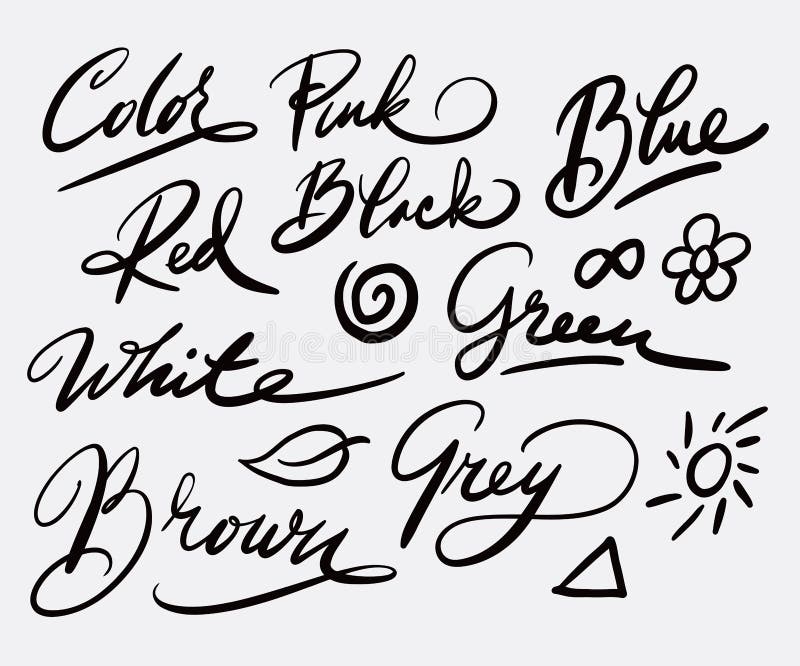 Color Pink Blue
Red Black
White Green
Brown Grey
dreamstime